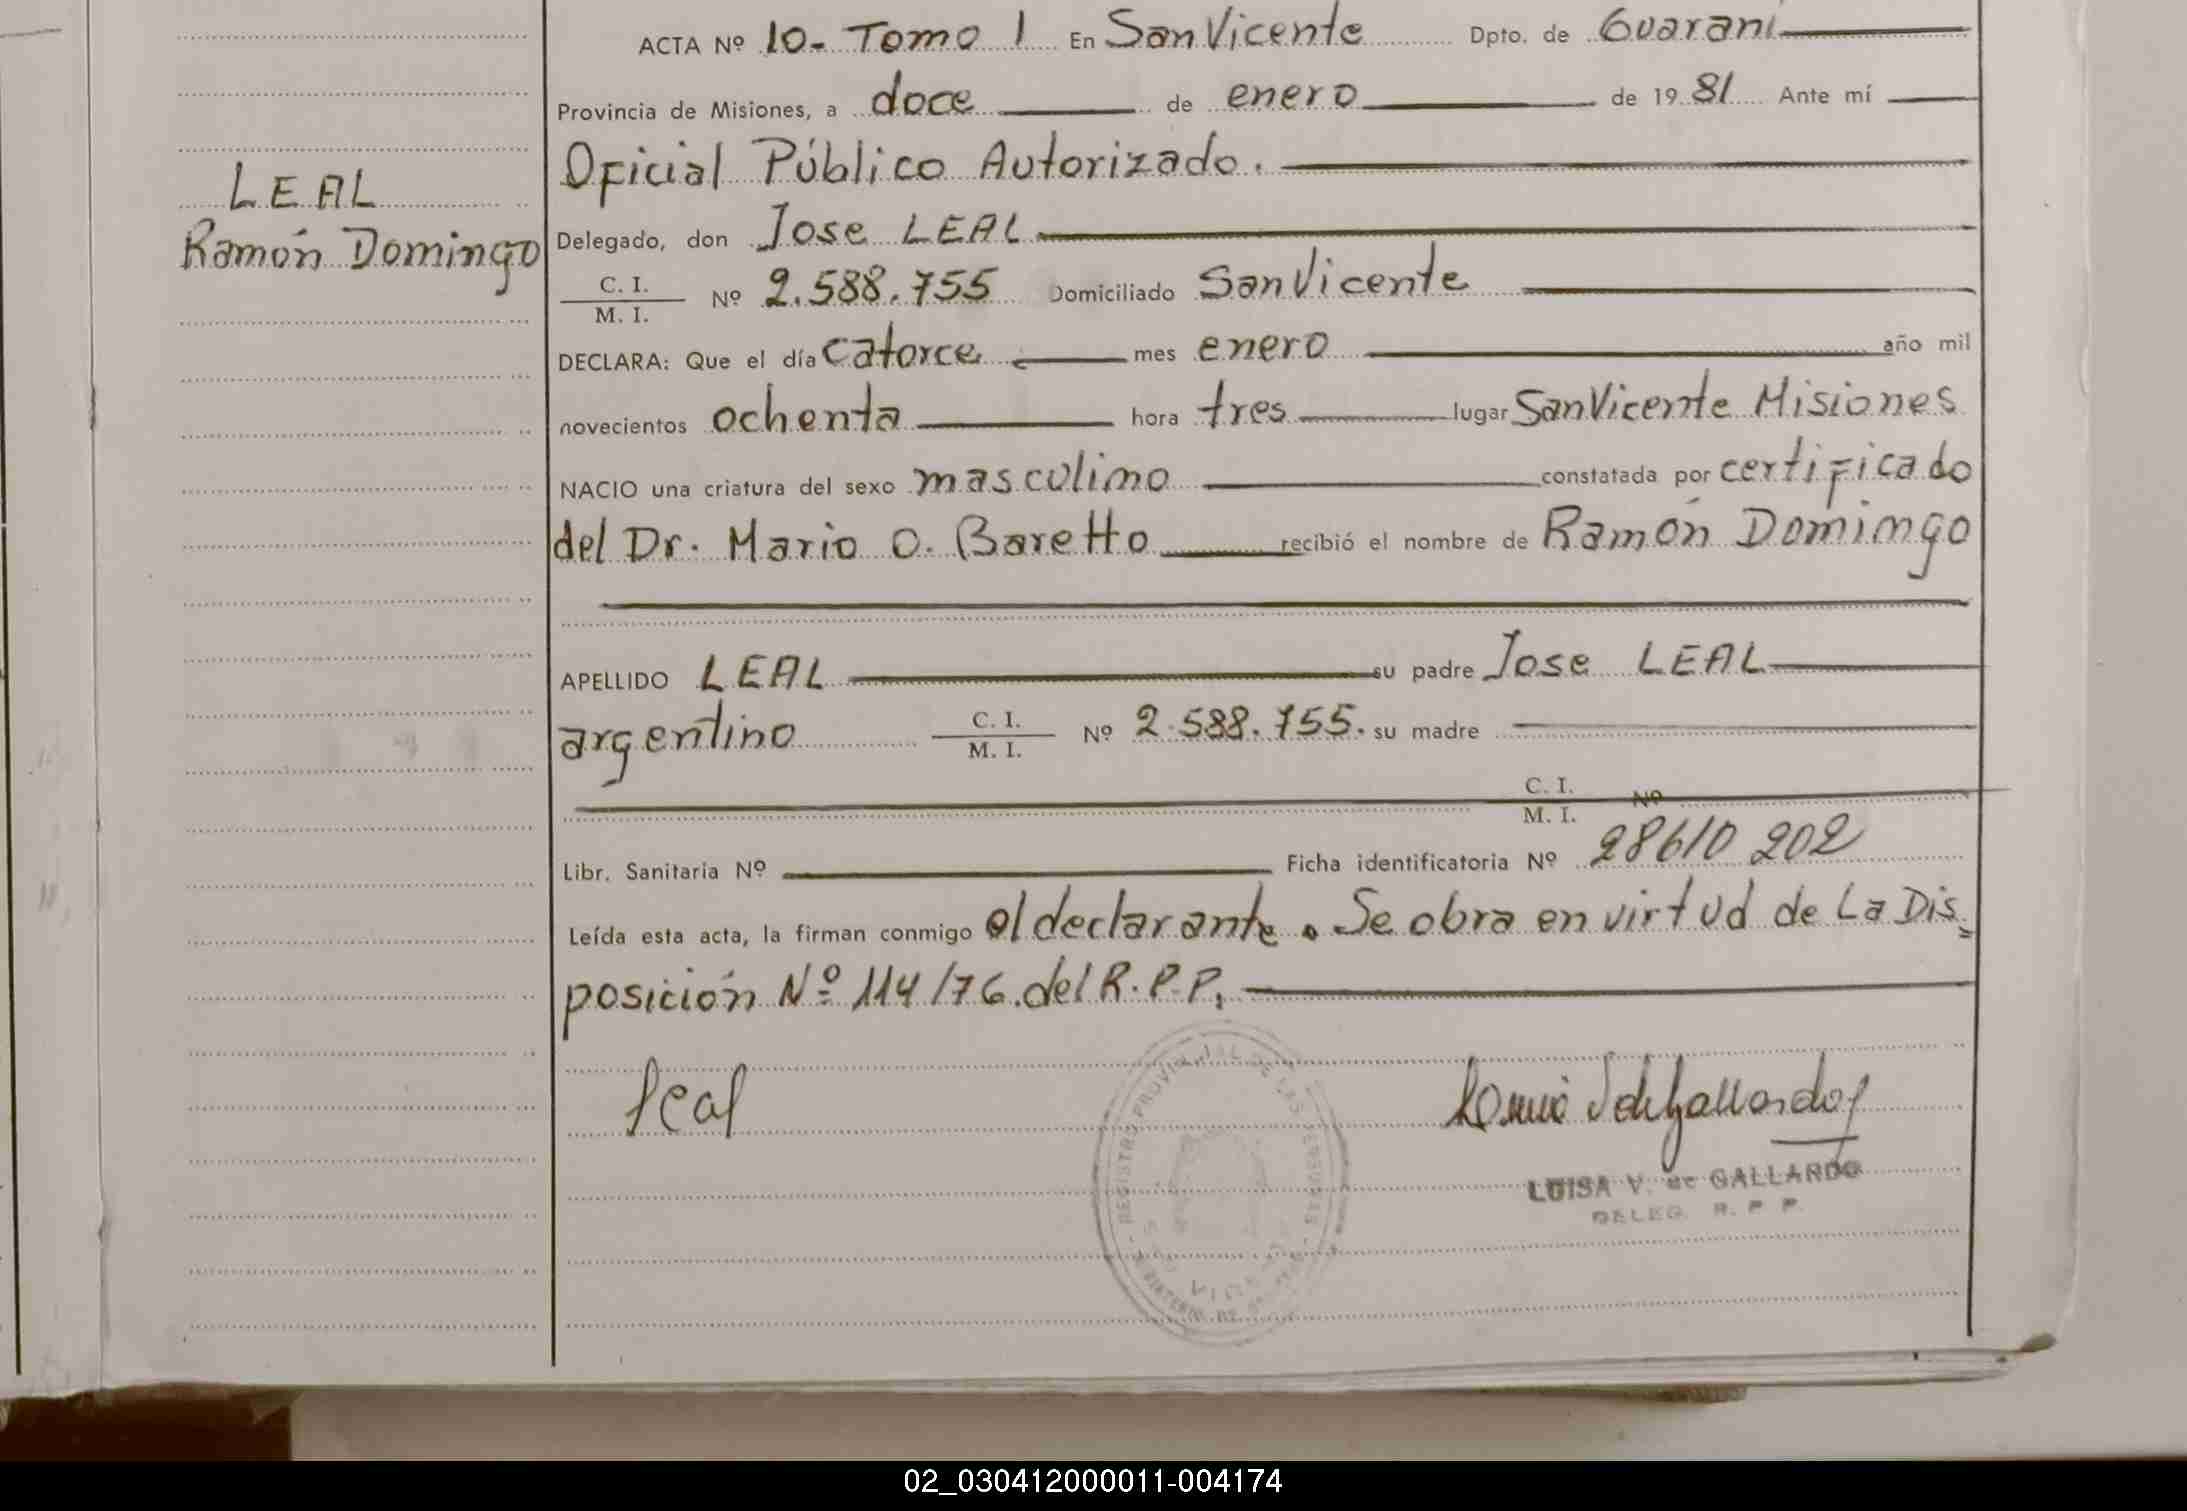 ACTA Nº 10- Tomo 1 En San Vicente Dpto. de Guaraní
Provincia de Misiones, a doce de enero de 1981 Ante mí
Oficial Público Autorizado.
LEAL
Ramón Domingo
Delegado, don Jose LEAL
C. I.
M. I. Nº 2.588.755 Domiciliado San Vicente
DECLARA: Que el día catorce mes enero año mil
novecientos ochenta hora tres lugar San Vicente Misiones
NACIO una criatura del sexo masculino constatada por certificado
del Dr. Mario O. Baretto recibió el nombre de Ramón Domingo
APELLIDO LEAL su padre Jose LEAL
argentino C. I.
M. I. Nº 2.588.755. su madre
C. I.
M. I. Nº
Libr. Sanitaria Nº Ficha identificatoria Nº 28610 202
Leída esta acta, la firman conmigo el declarante. Se obra en virtud de La Dis=
posición Nº 114/76. del R.P.P.
Leal
LUISA V. de GALLARDO
DELEG. R. P. P.
02_030412000011-004174